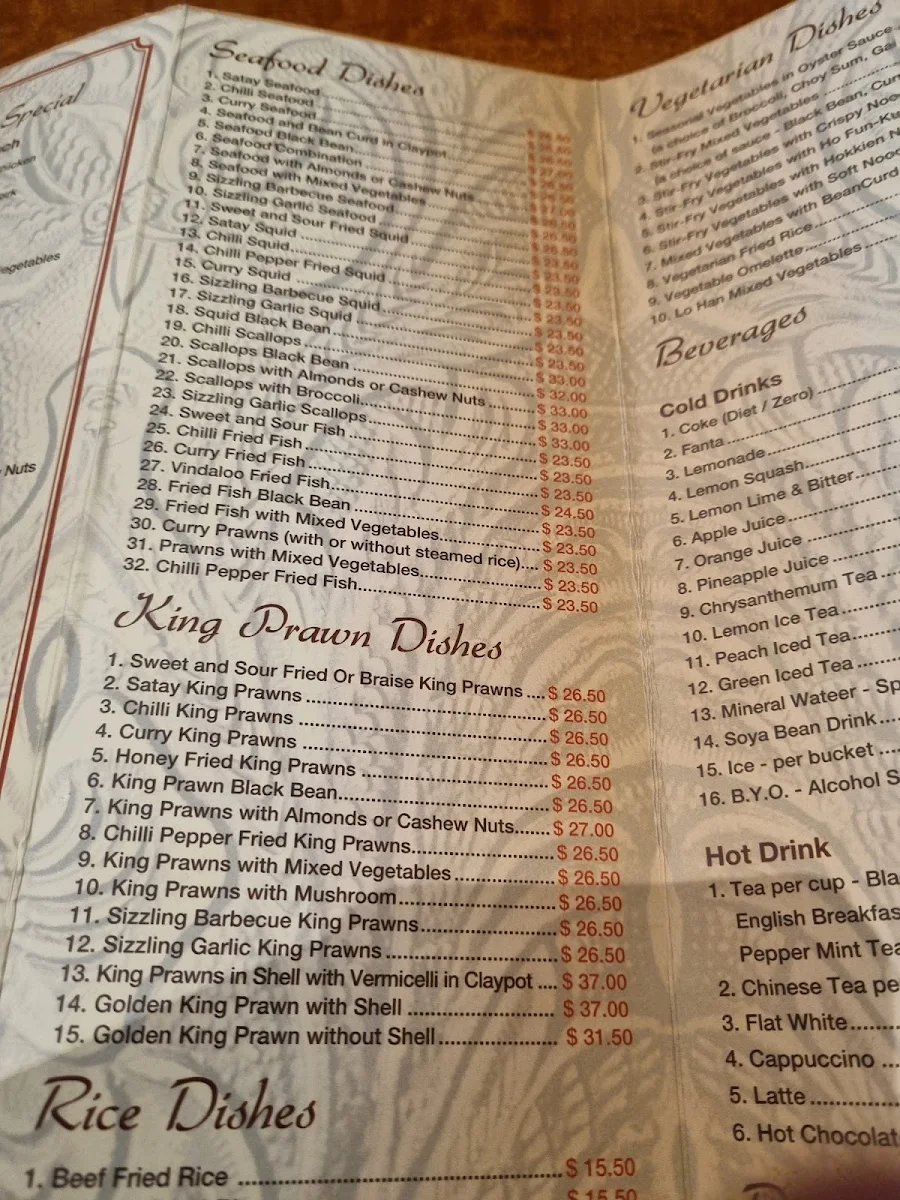 Special
Nuts
Seafood Dishes
1. Satay Seafood
2. Chilli Seafood
3. Curry Seafood
4. Seafood and Bean Curd in Claypot
5. Seafood Black Bean
6. Seafood Combination
7. Seafood with Almonds or Cashew Nuts
8. Seafood with Mixed Vegetables
9. Sizzling Barbecue Seafood
10. Sizzling Garlic Seafood
11. Sweet and Sour Fried Squid
12. Satay Squid
13. Chilli Squid
14. Chilli Pepper Fried Squid
15. Curry Squid
16. Sizzling Barbecue Squid
17. Sizzling Garlic Squid
18. Squid Black Bean $ 23.50
19. Chilli Scallops $ 33.00
20. Scallops Black Bean $ 32.00
21. Scallops with Almonds or Cashew Nuts $ 33.00
22. Scallops with Broccoli $ 33.00
23. Sizzling Garlic Scallops $ 33.00
24. Sweet and Sour Fish $ 23.50
25. Chilli Fried Fish $ 23.50
26. Curry Fried Fish $ 23.50
27. Vindaloo Fried Fish $ 24.50
28. Fried Fish Black Bean $ 23.50
29. Fried Fish with Mixed Vegetables $ 23.50
30. Curry Prawns (with or without steamed rice) $ 23.50
31. Prawns with Mixed Vegetables $ 23.50
32. Chilli Pepper Fried Fish $ 23.50
King Prawn Dishes
1. Sweet and Sour Fried Or Braise King Prawns $ 26.50
2. Satay King Prawns $ 26.50
3. Chilli King Prawns $ 26.50
4. Curry King Prawns $ 26.50
5. Honey Fried King Prawns $ 26.50
6. King Prawn Black Bean $ 26.50
7. King Prawns with Almonds or Cashew Nuts $ 27.00
8. Chilli Pepper Fried King Prawns $ 26.50
9. King Prawns with Mixed Vegetables $ 26.50
10. King Prawns with Mushroom $ 26.50
11. Sizzling Barbecue King Prawns $ 26.50
12. Sizzling Garlic King Prawns $ 26.50
13. King Prawns in Shell with Vermicelli in Claypot $ 37.00
14. Golden King Prawn with Shell $ 37.00
15. Golden King Prawn without Shell $ 31.50
Rice Dishes
1. Beef Fried Rice $ 15.50
$ 15.50
Vegetarian Dishes
1. Seasonal Vegetables in Oyster Sauce
(a choice of Broccoli, Choy Sum, Gai
2. Stir-Fry Mixed Vegetables
(a choice of sauce - Black Bean, Cur
3. Stir-Fry Vegetables with Crispy Noo
4. Stir-Fry Vegetables with Ho Fun-Ku
5. Stir-Fry Vegetables with Hokkien N
6. Stir-Fry Vegetables with Soft Nood
7. Mixed Vegetables with BeanCurd
8. Vegetarian Fried Rice
9. Vegetable Omelette
10. Lo Han Mixed Vegetables
Beverages
Cold Drinks
1. Coke (Diet / Zero)
2. Fanta
3. Lemonade
4. Lemon Squash
5. Lemon Lime & Bitter
6. Apple Juice
7. Orange Juice
8. Pineapple Juice
9. Chrysanthemum Tea
10. Lemon Ice Tea
11. Peach Iced Tea
12. Green Iced Tea
13. Mineral Wateer - Sp
14. Soya Bean Drink
15. Ice - per bucket
16. B.Y.O. - Alcohol S
Hot Drink
1. Tea per cup - Bla
English Breakfas
Pepper Mint Tea
2. Chinese Tea pe
3. Flat White
4. Cappuccino
5. Latte
6. Hot Chocolat